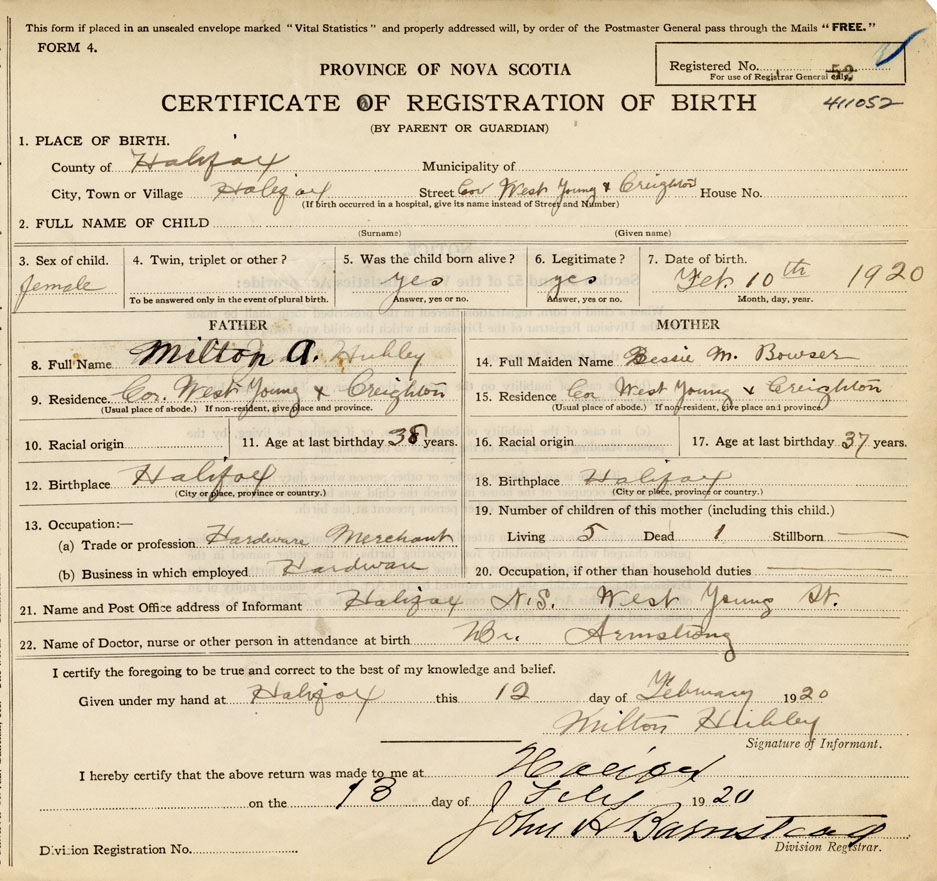 This form if placed in an unsealed envelope marked "Vital Statistics" and properly addressed will, by order of the Postmaster General pass through the Mails "FREE."
FORM 4.
Registered No. 52
For use of Registrar General only.
PROVINCE OF NOVA SCOTIA
CERTIFICATE OF REGISTRATION OF BIRTH
411052
(BY PARENT OR GUARDIAN)
1. PLACE OF BIRTH.
County of Halifax Municipality of
City, Town or Village Halifax Street Cor West Young & Creighton House No.
(If birth occurred in a hospital, give its name instead of Street and Number)
2. FULL NAME OF CHILD
(Surname) (Given name)
3. Sex of child. 4. Twin, triplet or other? 5. Was the child born alive? 6. Legitimate? 7. Date of birth.
female yes yes Feb 10th 1920
To be answered only in the event of plural birth. Answer, yes or no. Answer, yes or no. Month, day, year.
FATHER
8. Full Name Milton A. Hubley
9. Residence. Cor. West Young & Creighton
(Usual place of abode.) If non-resident, give place and province.
10. Racial origin 11. Age at last birthday 38 years.
12. Birthplace Halifax
(City or place, province or country.)
13. Occupation:—
(a) Trade or profession Hardware Merchant
(b) Business in which employed Hardware
MOTHER
14. Full Maiden Name Bessie M. Bowser
15. Residence Cor West Young & Creighton
(Usual place of abode.) If non-resident, give place and province.
16. Racial origin 17. Age at last birthday 37 years.
18. Birthplace Halifax
(City or place, province or country.)
19. Number of children of this mother (including this child.)
Living 5 Dead 1 Stillborn —
20. Occupation, if other than household duties —
21. Name and Post Office address of Informant Halifax N.S. West Young St.
22. Name of Doctor, nurse or other person in attendance at birth. Dr. Armstrong
I certify the foregoing to be true and correct to the best of my knowledge and belief.
Given under my hand at Halifax this 12 day of February 1920
Milton Hubley
Signature of Informant.
I hereby certify that the above return was made to me at Halifax
on the 13 day of Feby 1920
John H Barnstead
Division Registrar.
Division Registration No.